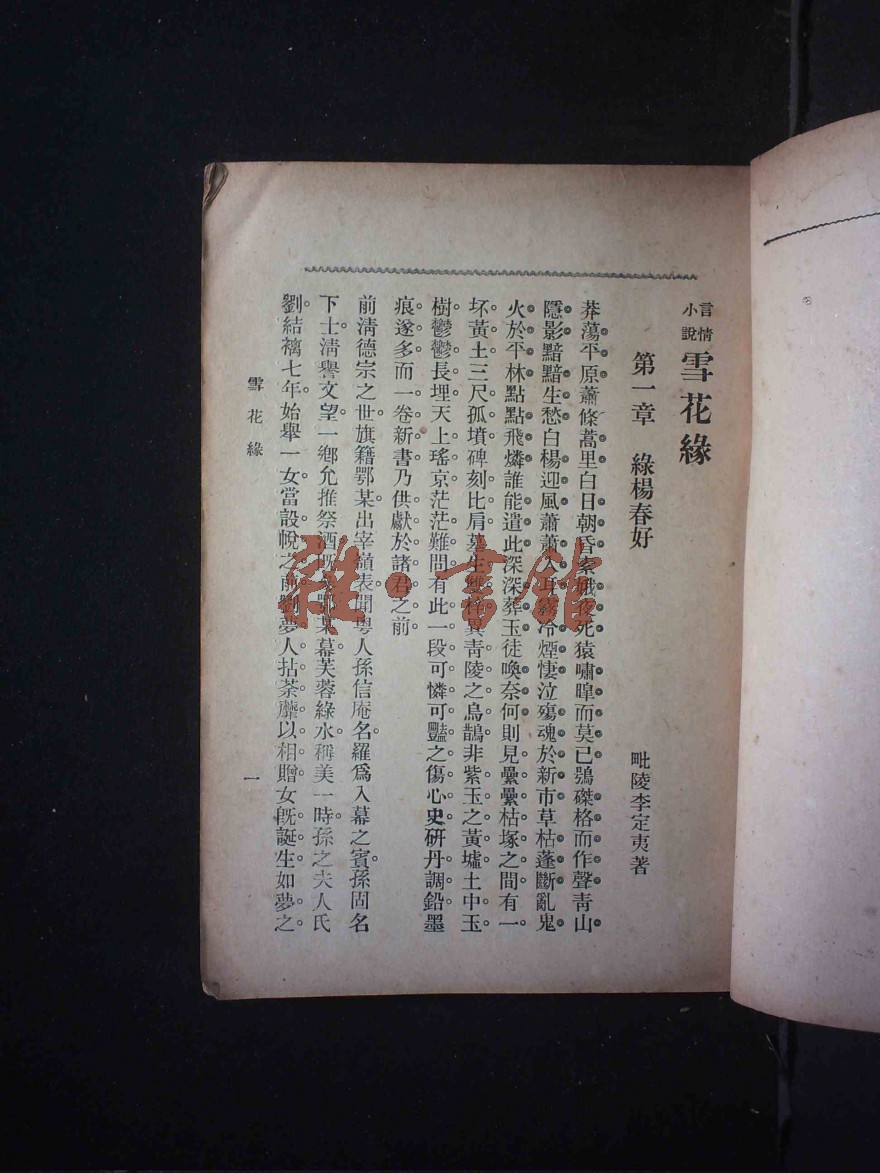 言情小說 雪花緣
第一章 綠楊春好
毗陵李定夷著
莽蕩平原蕭條蒿里白日朝昏素娥夜死猿嘯嘷而莫已鴞磔格而作聲青山
隱影黯黯生愁白楊迎風蕭蕭入耳霧冷煙悽泣殤魂於新市草枯蓬斷亂鬼
火於平林點點飛燐誰能遣此深深葬玉徒喚奈何則見纍纍枯塚之間有一
坏黃土三尺孤墳碑刻比肩墓生雙梓異青陵之鳥鵲非紫玉之黃壚土中玉
樹鬱鬱長埋天上瑤京茫茫難問有此一段可憐可豔之傷心史研丹調鉛墨
痕遂多而一卷新書乃供獻於諸君之前
前淸德宗之世旗籍鄂某出宰嶺表聞粵人孫信庵名羅爲入幕之賓孫固名
下士淸譽文望一鄉允推祭酒既參鄂某幕芙蓉綠水稱美一時孫之夫人氏
劉結褵七年始舉一女當設帨之前劉夢人拈荼蘼以相贈女旣誕生如夢之
雪花緣
一
雅·書館